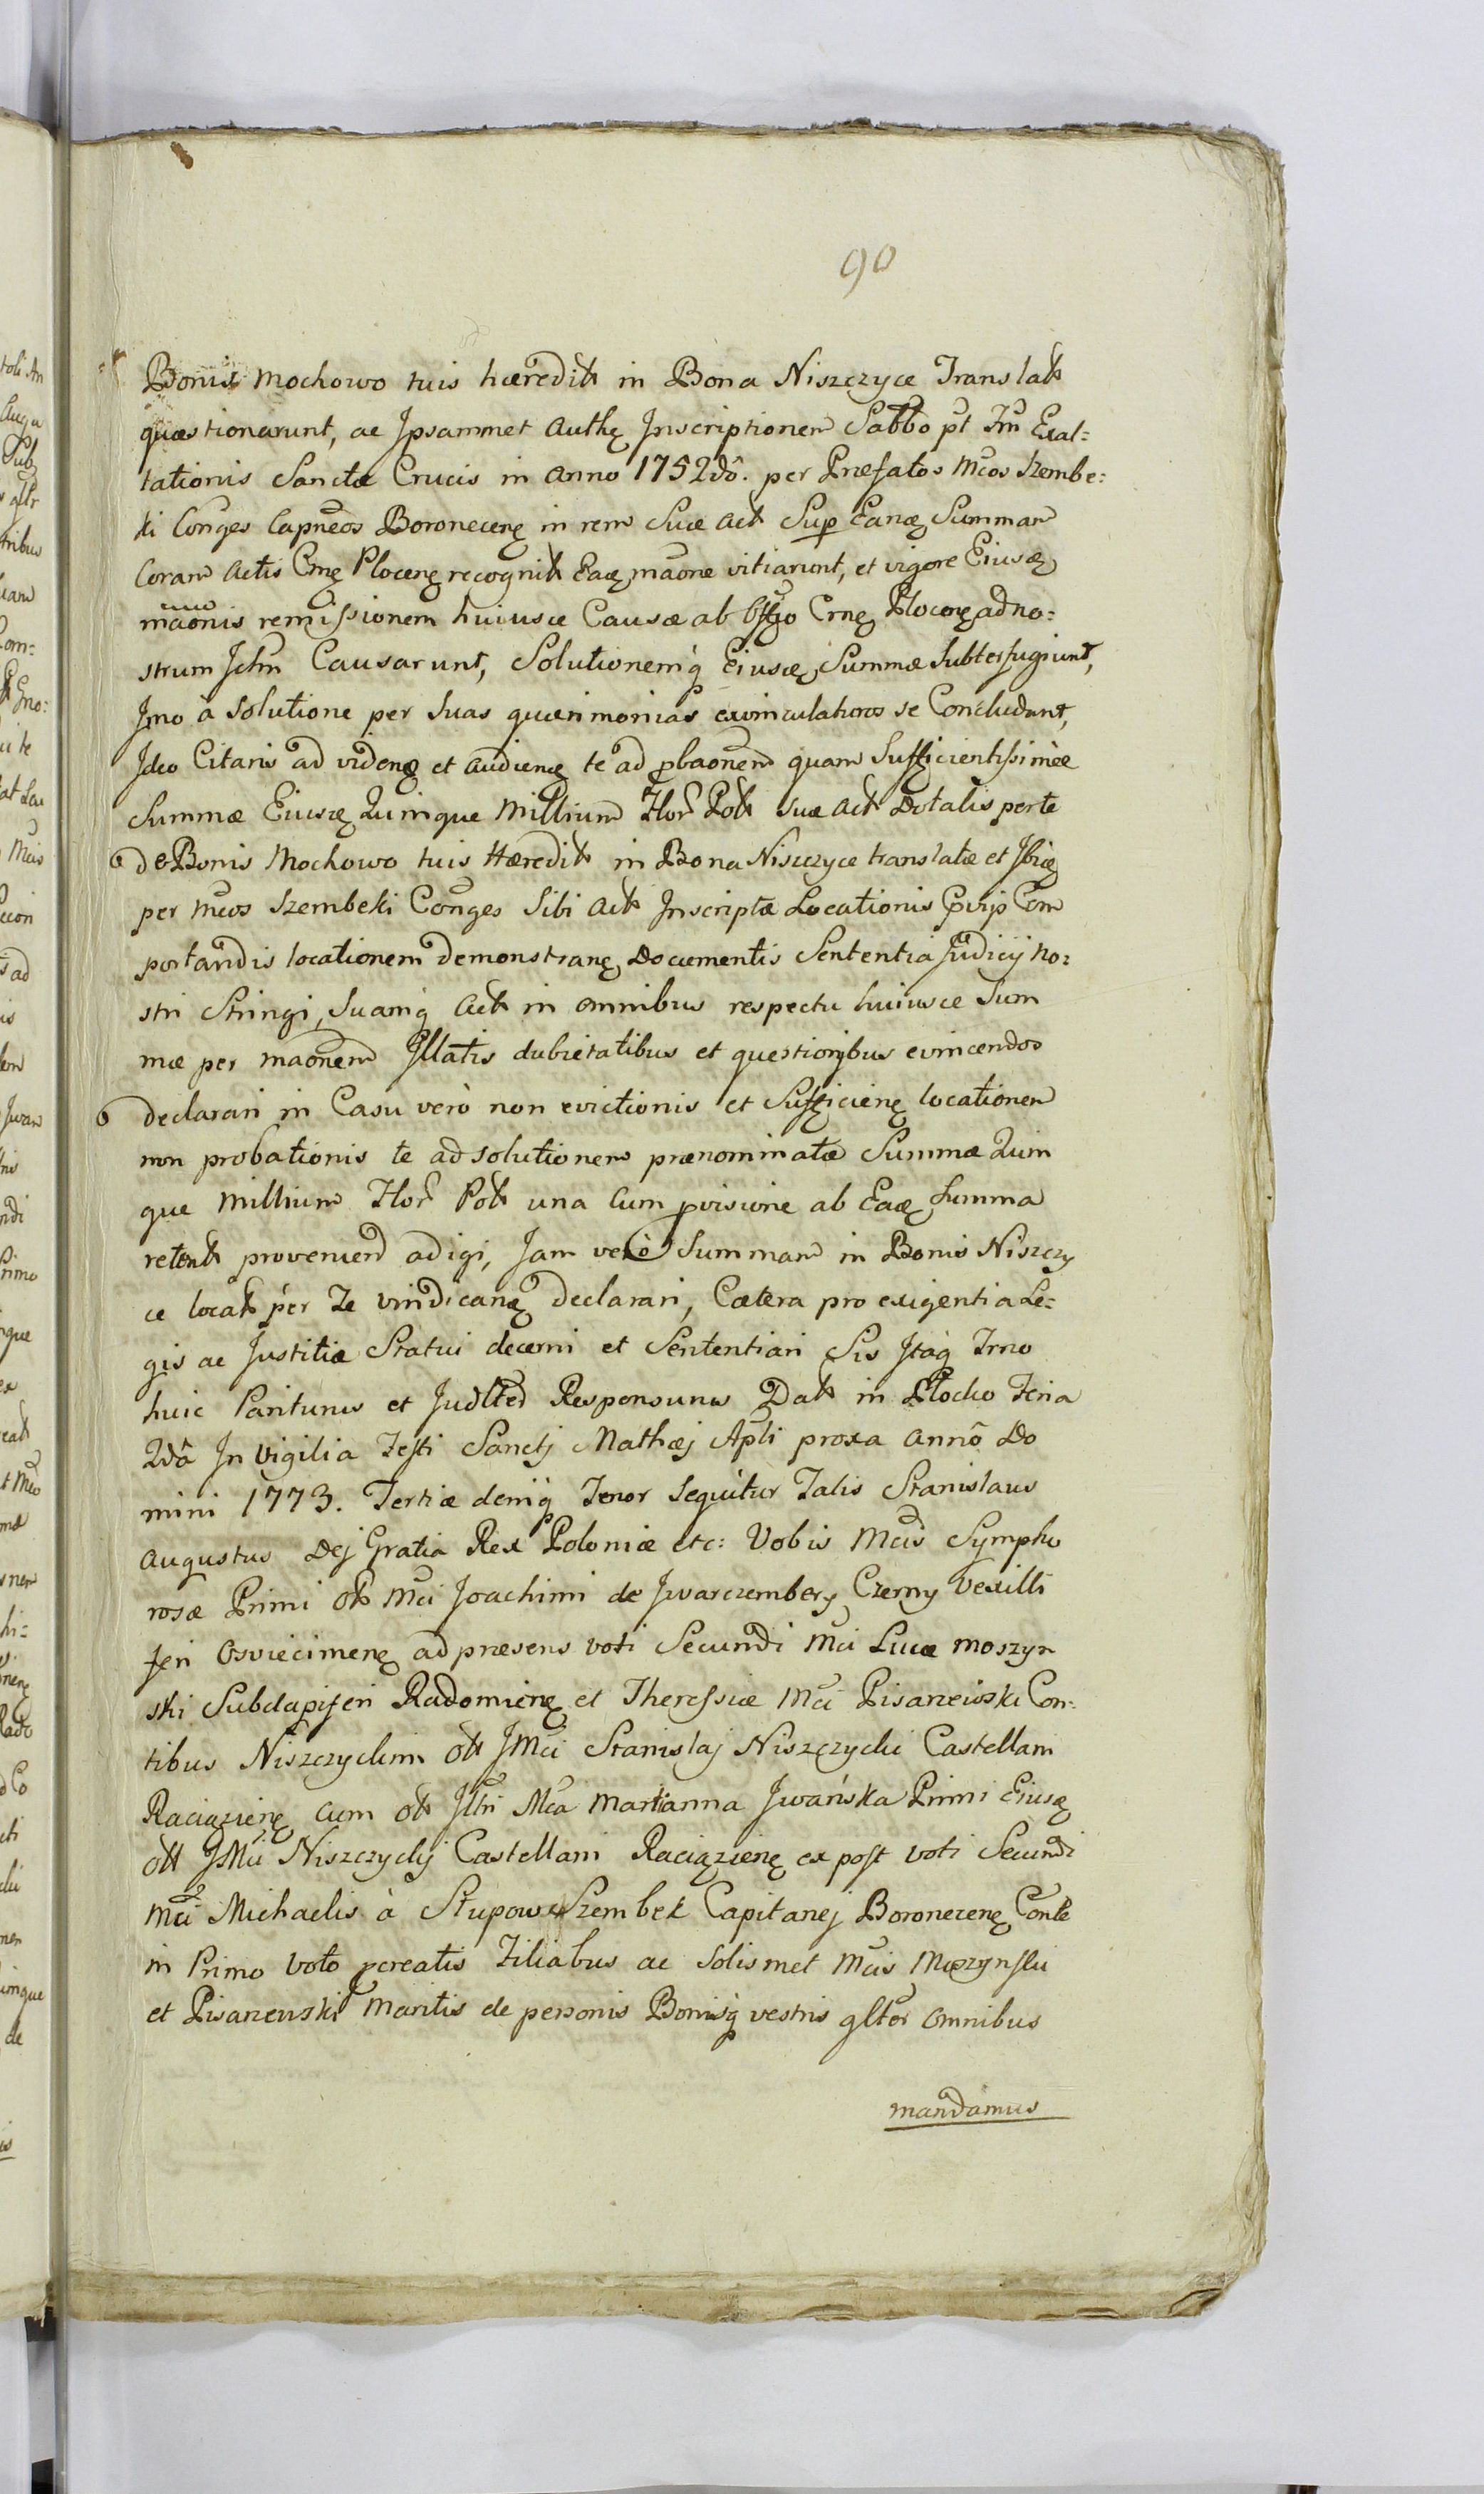 90
Bonis Mochowo tuis hæredit in Bona Niszczyce Translat
quæstionarunt, ac Jpsammet Authę Jnscriptionem Sabbo pt Fm Exal=
tationis Sanctæ Crucis in Anno 1752dô. per Præfatos Mcos Szembe=
ki Conges Capneos Boronecenę in rem Suæ Act Sup Eanę Summam
Coram Actis Crnę Plocenę recognit Eaę maõne vitiarunt, et vigore Eiusę
maõnis remissionem huiusce Causæ ab Offo Crnę Plocenę ad no=
strum Causarunt, Solutionemq Eiusę Summæ Subterfugiunt,
Jmo à Solutione per Suas quærimonias se Concludunt,
Jdeo Citaris ad videnę et Audienę te ad pbaõnem quam Sufficientissimæ
Summæ Eiusę Quinque Millium Flor Pol Suæ Act Dotalis per te
de Bonis Mochowo tuis Hæredit in Bona Niszczyce translatæ et Jbię
per Mcos Szembeki Conges Sibi Act Jnscriptæ Locationis Com
portandis locationem demonstranę Documentis Sententia Judicij no=
stri Stringi, Suamq Act in omnibus respectu huiusce Sum
mæ per maõnem Jllatis dubietatibus et questionibus evincendos
declarari in Casu verò non evictionis et Sufficienę locationem
non probationis te ad Solutionem prænominatæ Summæ Quin
que Millium Flor Pol una Cum pvisione ab Eaę Summa
retent provenien adigi, Jam verò Summam in Bonis Niszczy
ce locat per Te vindicanę declarari, Cætera pro exigentia Le=
gis ac Justitiæ Statui decerni et Sententiari Sis Jtaq Trno
huic Pariturus et Judlter Responsurus Dat in Plocko Feria
2dâ Jn Vigilia Festi Sanctj Mathæj Apli proxa Annô Do
mini 1773. Tertiæ deniq Tenor Sequitur Talis Stanislaus
Augustus Dej Gratia Rex Poloniæ etc: Vobis Mcis Sympho
rosæ Primi Mci Joachimi de Czerny Vexilli
feri Osviecimenę ad præsens voti Secundi Mci Lucæ Moszyn
ski Subdapiferi Radomienę et Theressiæ Mci Pisarzewski Con=
tibus Niszczyckim Olt JMci Stanislaj Niszczycki Castellani
Raciązienę Cum Olt Jltri Mca Martianna Jwańska Primi Eiusę
Olt JMci Niszczyckj Castellani Raciązienę ex post voti Secundi
Mci Michaelis à Słupow Szembek Capitanej Boronecenę Conte
in Primo Voto pcreatis Filiabus ac Solismet Mcis Moszynski
et Pisarzewski Maritis de personis Bonisq vestris glter Omnibus
mandamus